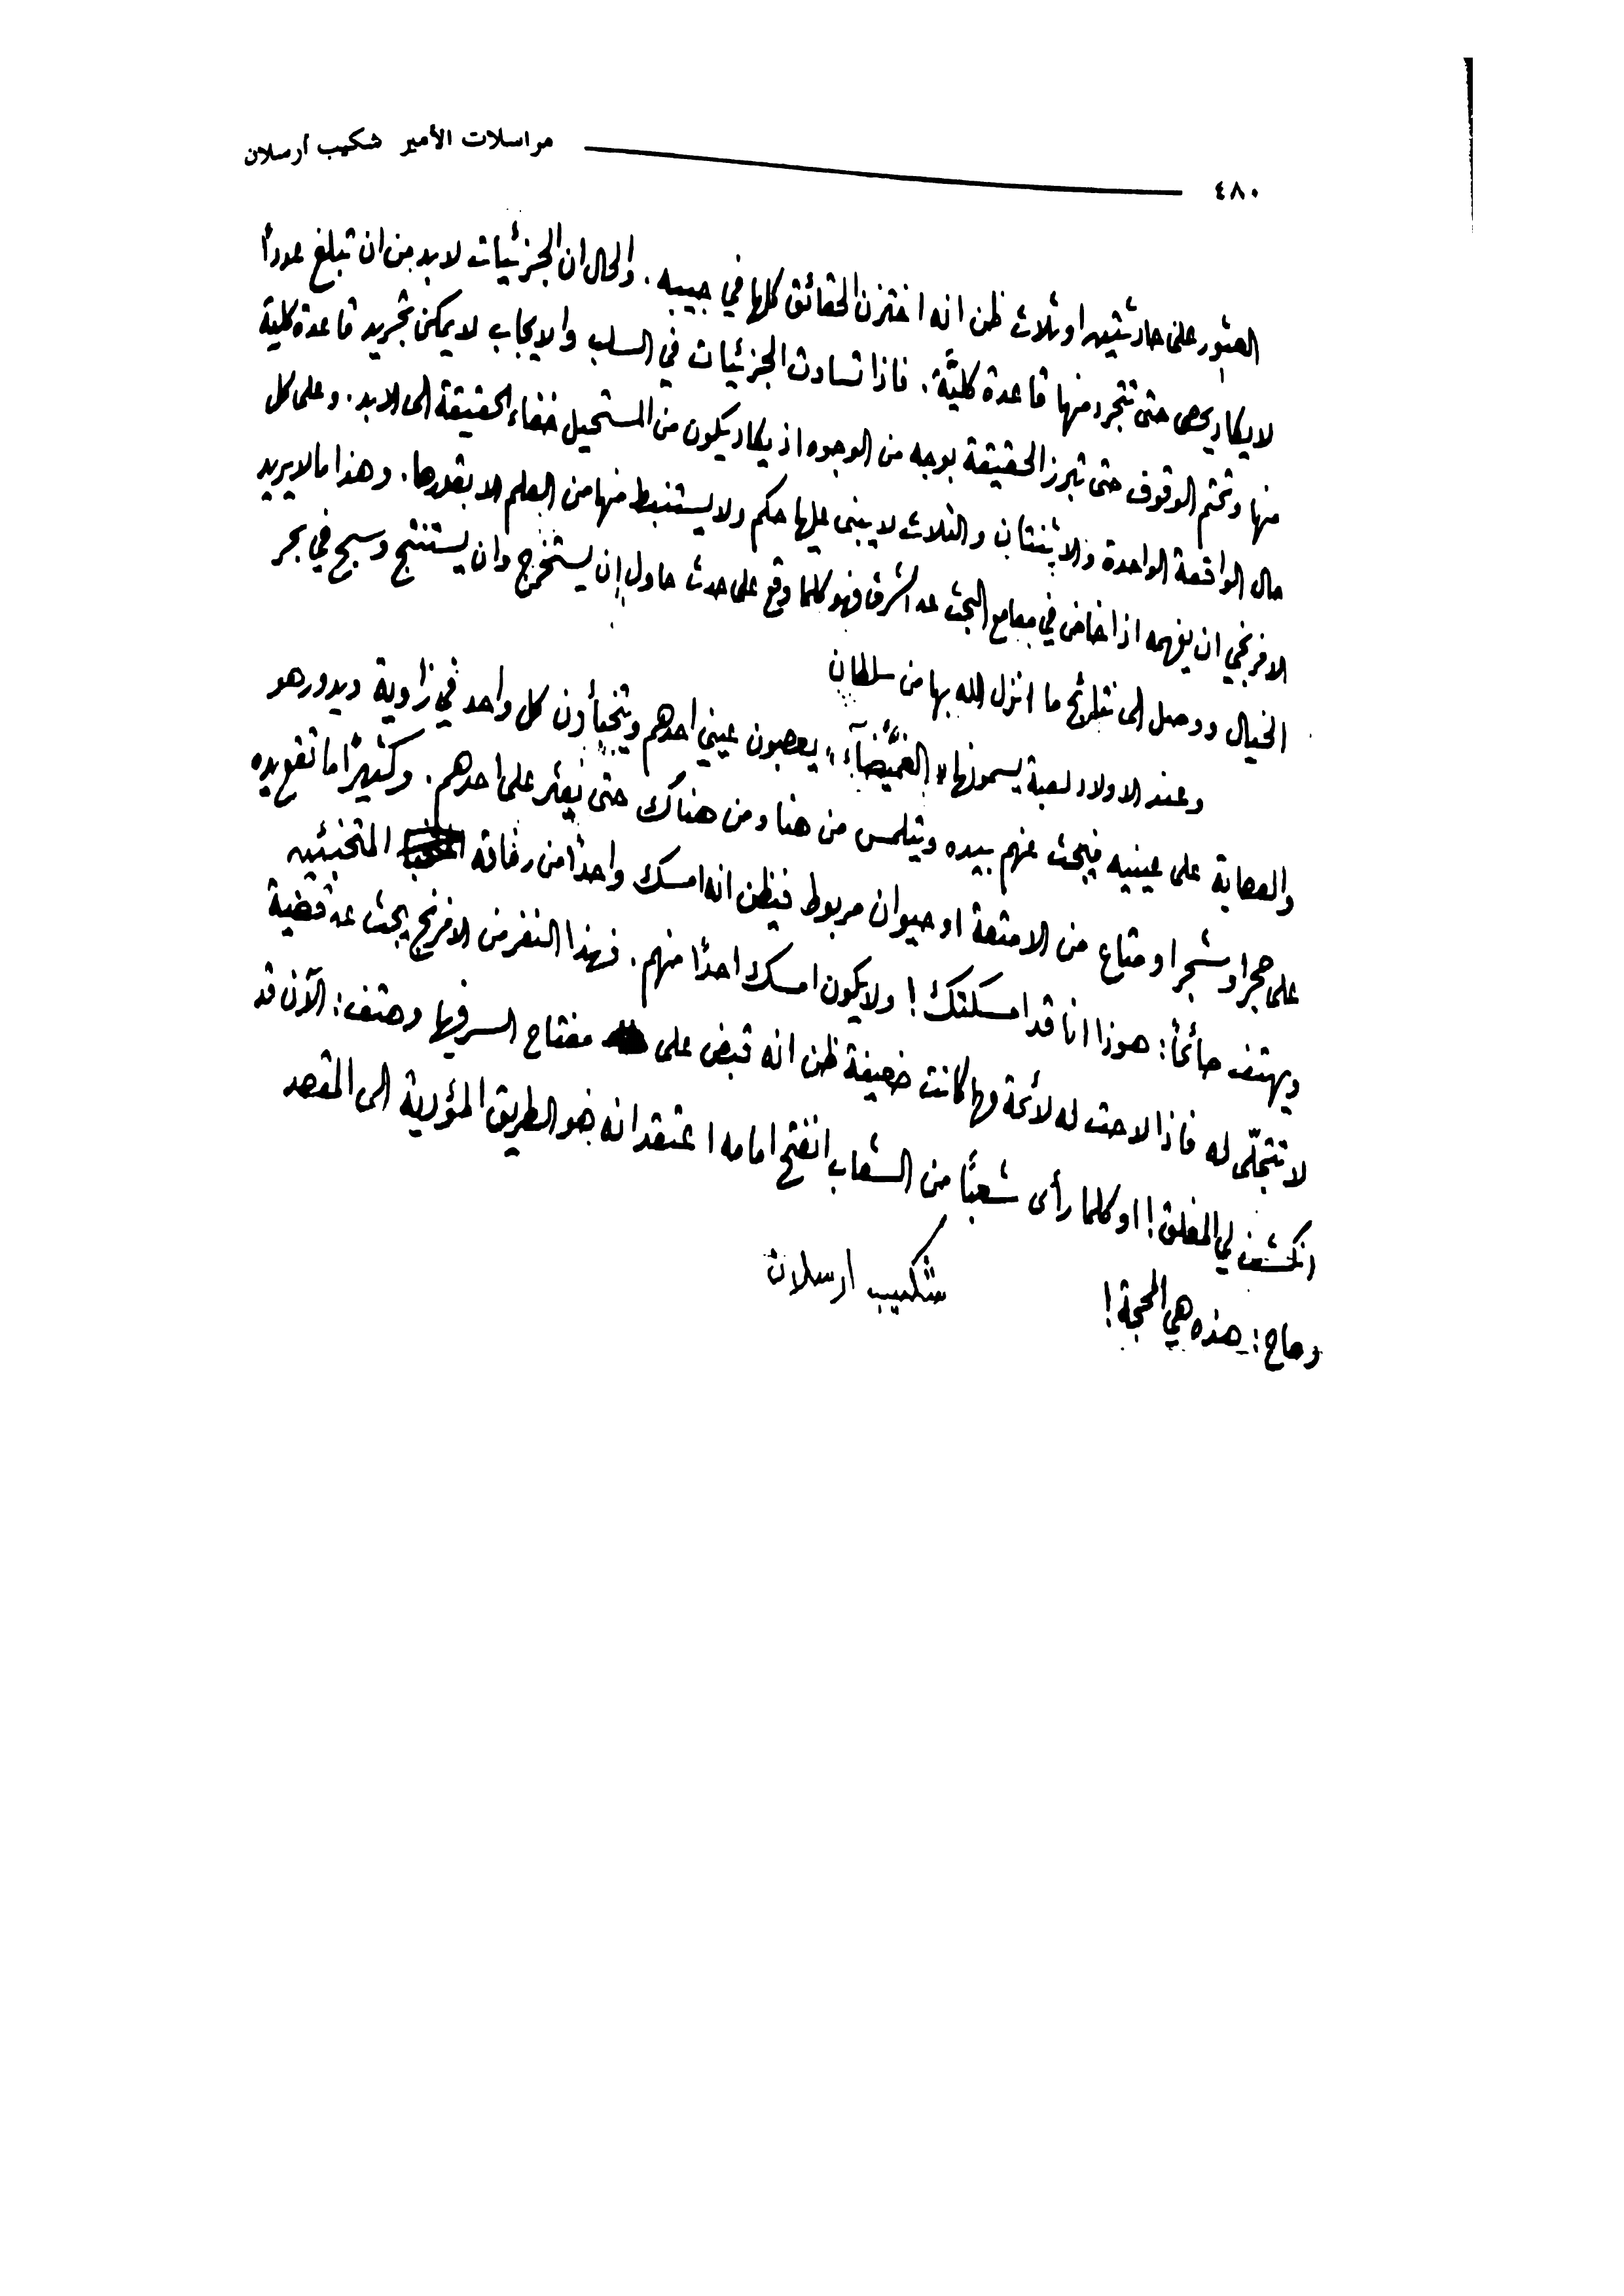 ٤٨٠ مراسلات الأمير شكيب أرسلان
العثور على حادثتين او ثلاث ظن انه اختزن الحقائق كلها في جيبه . والحال ان الجزئيات لا بد من ان تبلغ عدداً
لا يكاد يحصى حتى تتجرد منها قاعدة كليّة . فاذا تساوت الجزئيات في السلب والايجاب لا يمكن تجريد قاعدة كلية
منها وتحتم الوقوف حتى تبرز الحقيقة بوجه من الوجوه اذ يكاد يكون من المستحيل خفاء الحقيقة الى الابد . وعلى كل
حال الواقعة الواحدة والاثنتان والثلاث لا يبنى عليها حكم ولا يستنبط منها من العلم الا بقدرها . وهذا ما لا يريد
الافرنجي ان يفهمه اذا خاض في معامع البحث عن الشرق فهو كلما وقع على حدث حاول ان يستخرج وان يستنتج وسبح في بحر
الخيال ووصل الى نتائج ما انزل الله بها من سلطان
وعند الاولاد لعبة يسمونها « الغُمَّيْضَآء » يعصبون عيني احدهم ويتخبأون كل واحد في زاوية ويدور هو
والعصابة على عينيه فيبحث عنهم بيده ويتلمس من هنا ومن هناك حتى يعثر على احدهم . وكثيرًا ما تقع يده
على حجر او شجر او متاع من الامتعة او حيوان مربوط فيظن انه امسك واحدًا من رفاقه المتخبئين
ويهتف صائحًا : هوذا انا قد امسكتك ! ولا يكون امسك احدًا منهم . فهذا النفر من الافرنج يبحث عن قضية
لا تتجلّى له فاذا لاحت له لائحة مهما كانت ضعيفة ظن انه قبض على مفتاح السر فيها وهتف : الآن قد
انكشف لي المغلق ! او كلما رأى شعبًا من الشعاب انفتح امامه اعتقد انه هو الطريق المؤدية الى المقصد
وصاح : هذه هي المحجة !
شكيب ارسلان